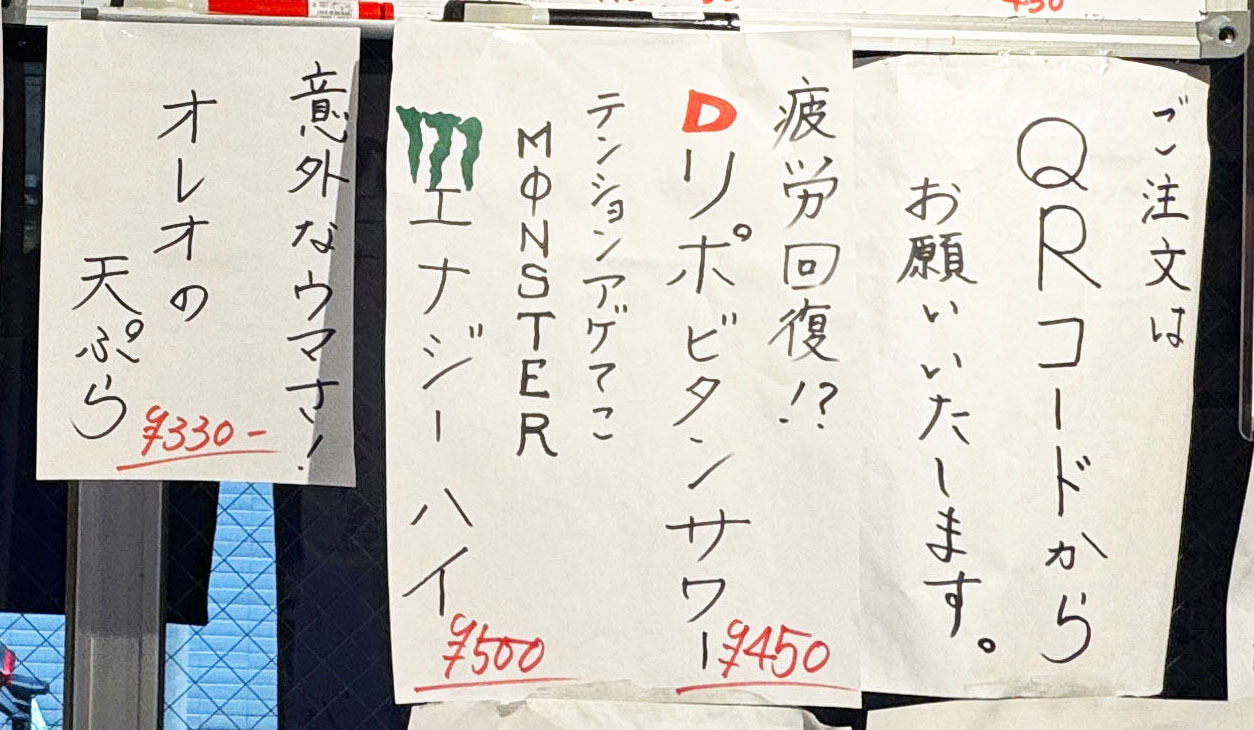 ご注文は
QRコードから
お願いいたします。
疲労回復!?
Dリポビタンサワー
¥450
テンションアゲてこ
MONSTER
エナジーハイ
¥500
意外なウマさ!
オレオの
天ぷら
¥330-